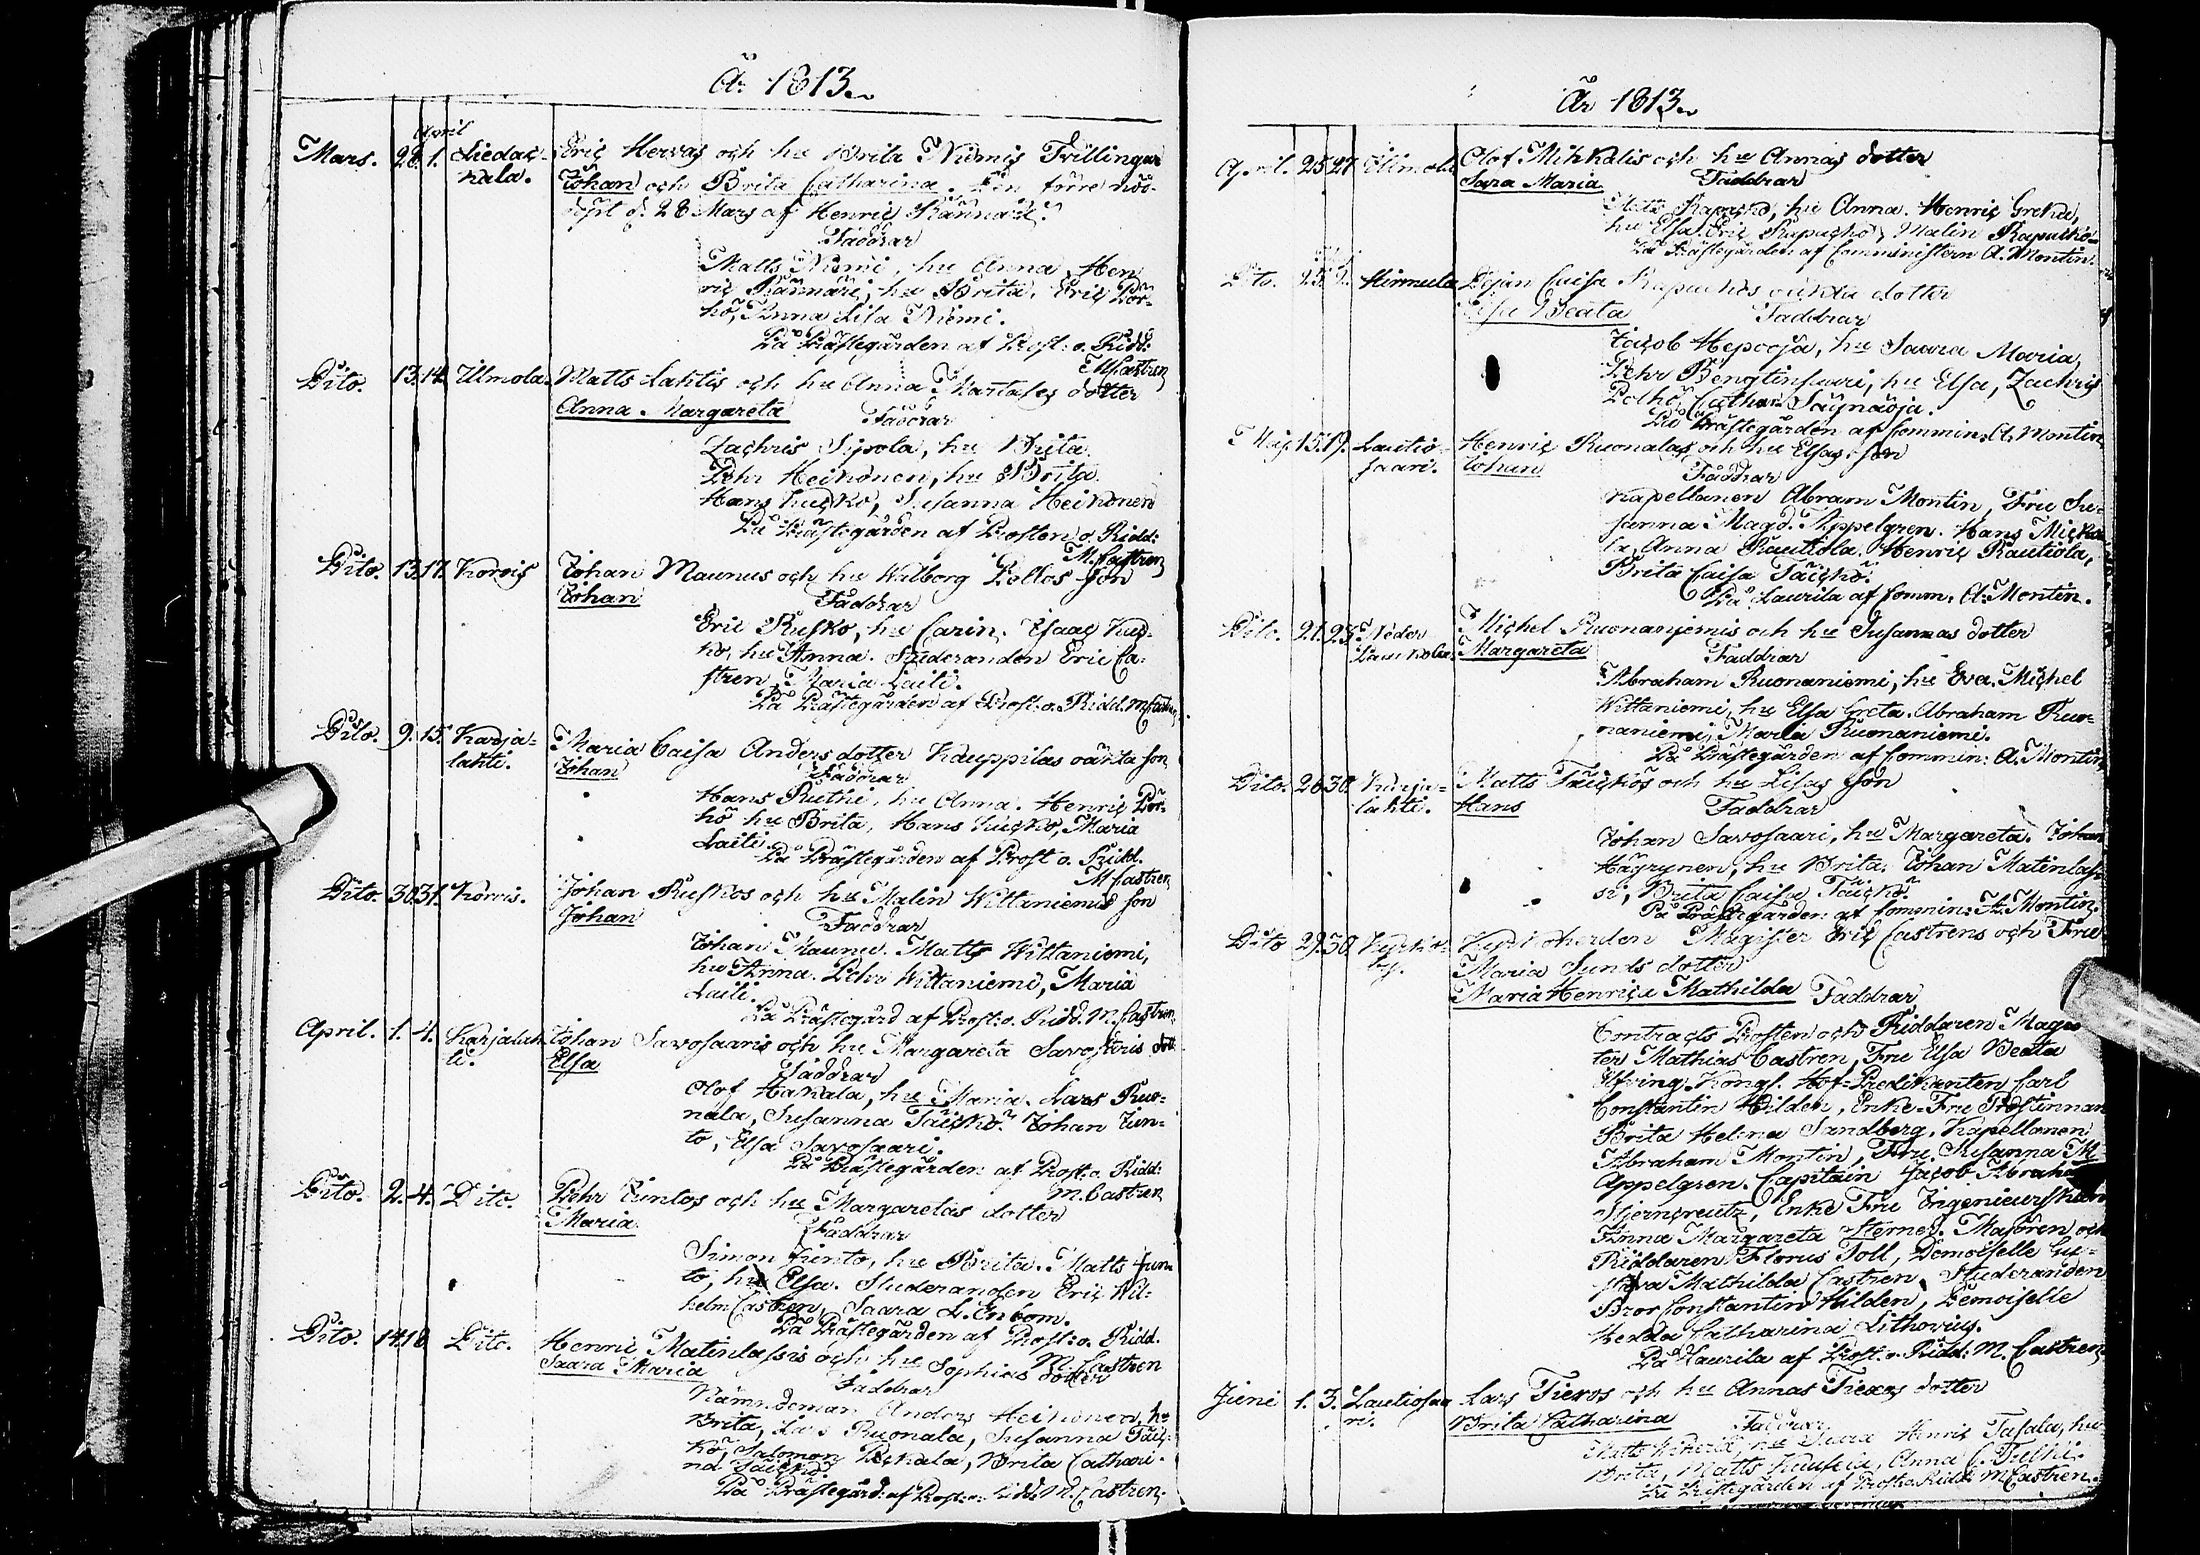 År 1813.
Mars. 28. April 1. Liedac-
kala.
Eric Hervas och hu Brita Niemis Trillingar
Johan och Brita Catharina. Den förre nöd-
döpt d. 28 Mars af Henric Kännäri.
Faddrar
Matts Niemi, hu Anna, Hen
ric Kännäri, hu Brita. Eric Pör-
hö, Anna Lisa Niemi.
På Prästegården af Prost. o. Ridd:
M Castren
Dito. 13. 14. Ulmola. Matts Lahtis och hu Anna dotter
Anna Margareta Faddrar
Zachris Sipola, hu Brita.
Pehr Heikonen, hu Brita.
Hans Susanna Heikonen
På Prästegården af Prosten o. Ridd:
M. Castren
Dito. 13. 17. Korvis Johan Maunus och hu Walborg Pollos Son
Johan Faddrar
Eric Rusko, hu Carin. Isaac
hu Anna. Studeranden Eric Ca-
stren, Maria Laiti.
På Prästegården af Prost. o. Ridd. M Castren
Dito. 9. 15. Karja-
lahti.
Maria Caisa Anders dotter Kauppilas oäkta son
Johan Faddrar
Hans Ruthi, hu Anna. Henric Pör-
hö hu Brita, Hans Maria
Laiti.
På Prästegården af Prost o. Ridd.
M Castren
Dito. 30. 31. Korvis. Johan Ruskos och hu Malin Wittaniemis son
Johan Faddrar
Johan Maunu. Matts Wittaniemi,
hu Anna. Pehr Wittaniemi, Maria
Laiti.
På Prästegård af Prost. o. Ridd. M. Castren
April. 1. 4. Karjalah
ti.
Johan Savosaaris och hu Margareta dott
Elsa Faddrar
Olof Hakala, hu Maria. Lars Ruo-
nala, Susanna Täickö. Johan Jun-
to, Elsa Savosaari.
På Prästegården af Prost. o Ridd:
M. Castren
Dito. 2. 4. Dito. Pehr Juntos och hu Margaretas dotter
Maria Faddrar
Simon Junto, hu Brita. Matts Jun-
to, hu Elsa. Studeranden Eric Wil-
helm Castren, Saara L. Enbom.
På Prästegården af Prost. o. Ridd.
M. Castren
Dito. 14. 18 Dito. Henric Matinlassis och hu Sophias dotter
Saara Maria Faddrar
Nämndeman Anders Heikonen, hu
Brita, Lars Ruonala, Susanna Täic-
kö, Salomon Pekala, Brita Cathari-
na Täickö.
På Prästegård: af Prost. o. Ridd. M. Castren.
År 1813.
April. 25. 27. Ilmola Olof Mihkalis och hu Annas dotter
Sara Maria Faddrar
Matts Rapacko, hu Anna. Henric Greku,
hu Elsa. Eric Rapacko, Malin Rapacko.
På Prästegården af Comministern A. Montin.
Dito. 25. Hirmula Pigan Caisa Rapackos oäkta dotter
Elsa Beata Faddrar
Jacob Hepooja, hu Saara Maria,
Pehr Bengtinsaari, hu Elsa, Zachris
Polho, Cathar. Säynäoja.
På Prästegården af Commin: A. Montin
Maj. 15. 19. Lautio-
saari.
Henric Ruonalas och hu Elsas Son
Johan Faddrar
Kapellanen Abram Montin, Fru Su-
sanna Magd. Appelgren. Hans Micko
la, Anna Rautiola. Henric Rautiola,
Brita Caisa Täickö.
På Laurila af Comm. A. Montin.
Dito. 21. 23. Neder
Michel Ruonaniemis och hu Susannas dotter
Margareta Faddrar
Abraham Ruonaniemi, hu Eva. Michel
Wittaniemi, hu Elsa Greta. Abraham Ruo-
naniemi, Maria Ruonaniemi.
På Prästegården af Commin: A. Montin
Dito. 26. 30. Karja-
lahti.
Matts Täickös och hu Lisas Son
Hans Faddrar
Johan Savosaari, hu Margareta. Johan
Hägrynen, hu Brita. Johan Matinlas-
si, Brita Caisa Täickö.
På Prästegården: af Commin: A. Montin.
Dito 29. 30. Kyrkio-
by.
Kyrkoherden Magister Eric Castrens och Fru
Maria Sunds dotter
Maria Henrica Mathilda Faddrar
Contracts Prosten och Riddaren Magis
ter Mathias Castren, Fru Elsa Beata
Elfving. Kongl. Hof-Predikanten Carl
Constantin Hilden, Enke-Fru Prostinnan
Brita Helena Sandberg, Kapellanen
Abraham Montin, Fru Susanna M
Appelgren. Capitain Jacob Abraham
Stjerncreutz, Enke Fru Ingenieurskan
Anna Margareta Hernes. Majoren och
Riddaren Florus Toll, Demoiselle Gu-
stava Mathilda Castren, Studeranden
Bror Constantin Hilden, Demoiselle
Hedda Catharina Lithovius.
På Laurila af Prost. o. Ridd: M. Castren
Juni 1. 3. Lautiosaa
ri.
Lars Tievos och hu Annas Tievas dotter
Brita Catharina Faddrar
Matts hu Saara Henric Tasala, hu
Brita, Matts Anna C.
På Prästegården af Prost. o Ridd: M Castren.